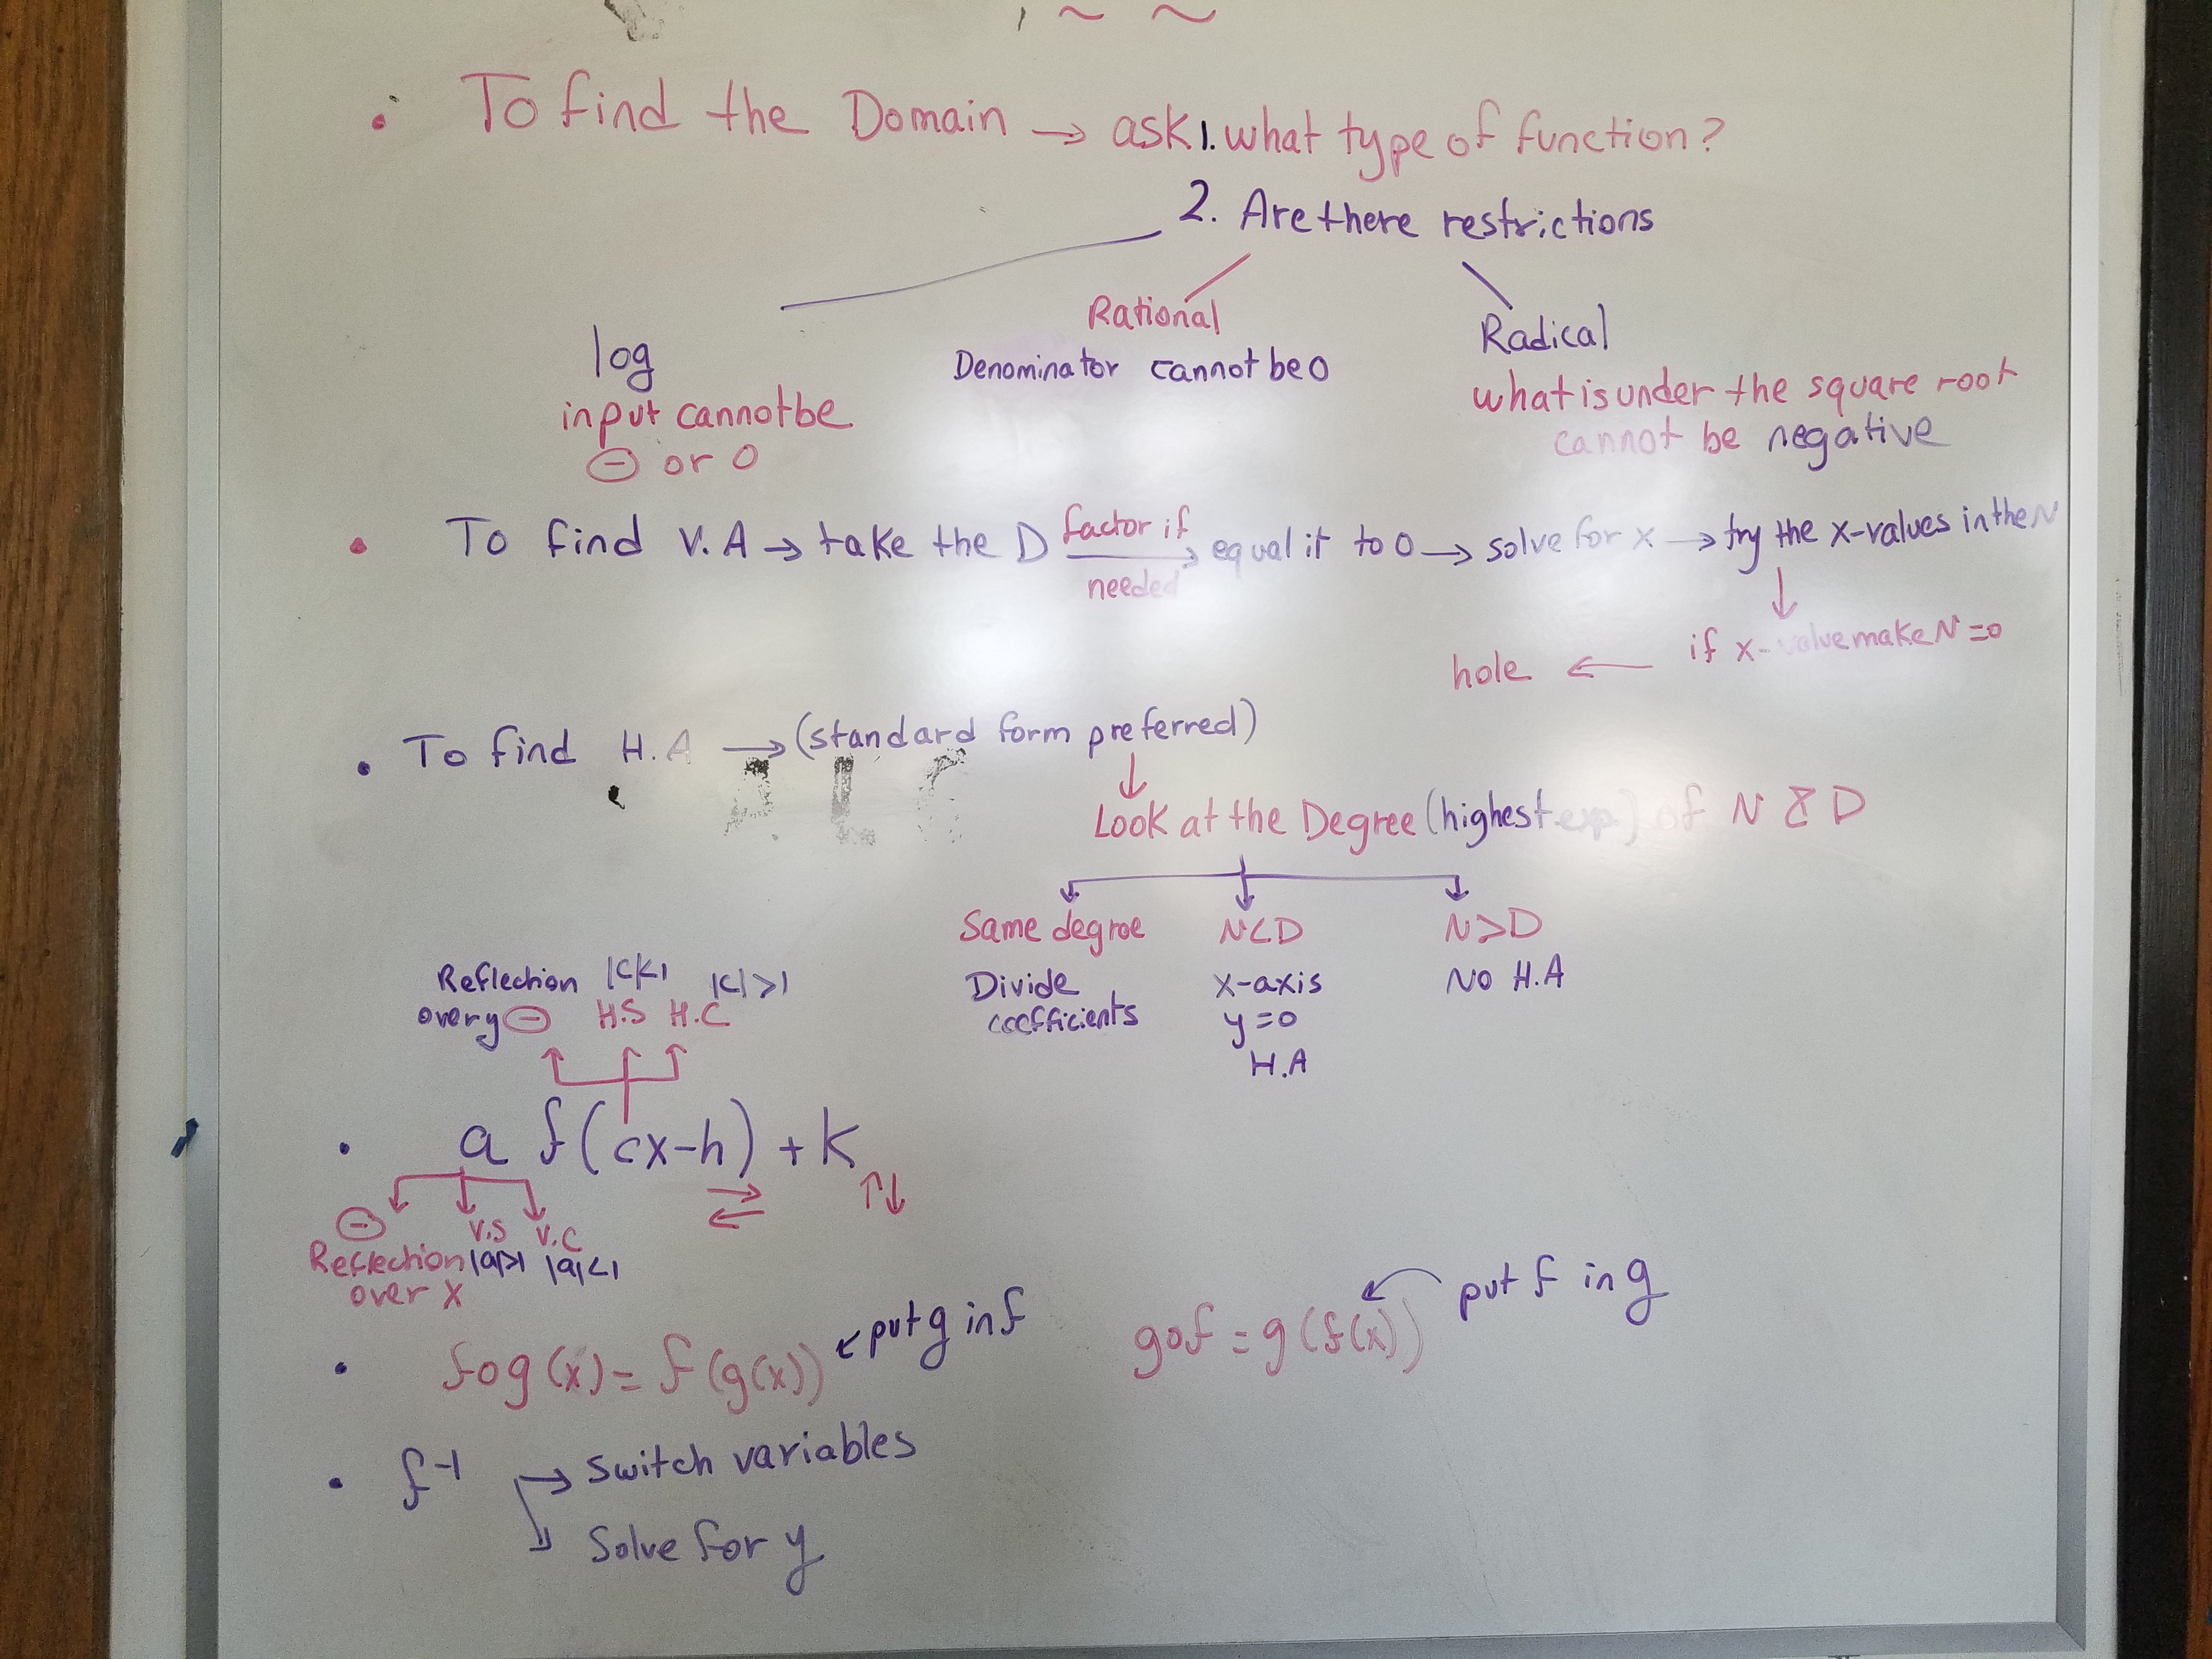 • To find the Domain → ask 1. what type of function?
2. Are there restrictions
log
input cannot be
⊖ or 0
Rational
Denominator cannot be 0
Radical
what is under the square root
cannot be negative
• To find V.A → take the D factor if needed → equal it to 0 → solve for x → try the x-values in the N
↓
if x-value make N=0
hole ←
• To find H.A → (standard form preferred)
↓
Look at the Degree (highest exp.) of N & D
Same degree
Divide
coefficients
N<D
x-axis
y=0
H.A
N>D
No H.A
A L C
Reflection |c|<1 |c|>1
over y ⊖ H.S H.C
• a f(cx-h) + K
⊖ V.S V.C
Reflection |a|>1 |a|<1
over x
• fog(x) = f(g(x)) ← put g in f
gof = g(f(x)) put f in g
• f⁻¹ → Switch variables
Solve for y